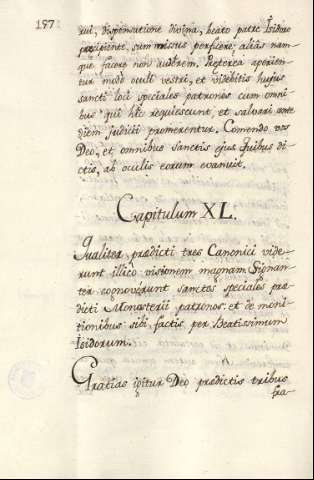 197
rui, dispensatione divina, beato patre Isidoro
præcipiente, sum missus perficere; alias nam-
que facere non auderem. Præterea aperien-
tur modo oculi vestri, et videbitis hujus
sancti loci speciales patronos cum omni-
bus qui hîc requiescunt, et salvari ante
diem judicii promerentur. Comendo vos
Deo, et omnibus sanctis ejus. Quibus di-
ctis, ab oculis eorum evanuit.
Capitulum XL.
Qualiter prædicti tres Canonici vide-
runt illico visionem magnam. Signan-
ter cognoverunt sanctos speciales præ-
dicti Monasterii patronos: et de moni-
tionibus sibi factis per Beatissimum
Isidorum.
Gratias igitur Deo predictis tribus
fra-